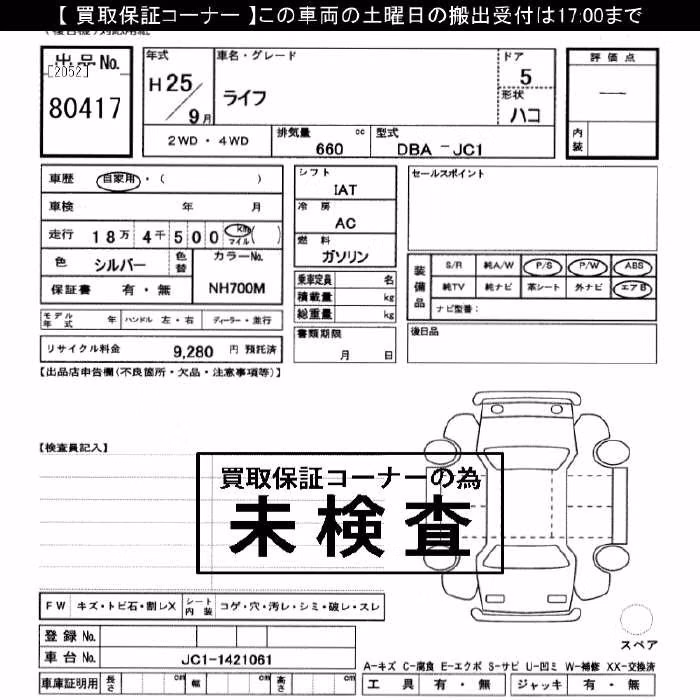 【 買取保証コーナー 】この車両の土曜日の搬出受付は17:00まで
出品No.
[2052]
80417
年式
H25/9月
車名・グレード
ライフ
ドア
5
形状
ハコ
評価点
―
内装
2WD・4WD
排気量 cc
660
型式
DBA-JC1
車歴 自家用・( )
車検 年 月
走行 18万4千500 Km マイル ( )
色 シルバー 色替
カラーNo.
NH700M
保証書 有・無
シフト
IAT
冷房
AC
燃料
ガソリン
乗車定員 名
積載量 kg
総重量 kg
書類期限
月 日
モデル年式 年 ハンドル 左・右 ディーラー・並行
リサイクル料金 9,280 円 預託済
セールスポイント
装備品
S/R 純A/W P/S P/W ABS
純TV 純ナビ 革シート 外ナビ エアB
ナビ型番:
後日品
【出品店申告欄(不良箇所・欠品・注意事項等)】
【検査員記入】
買取保証コーナーの為
未検査
FW キズ・トビ石・割レX シート内装 コゲ・穴・汚レ・シミ・破レ・スレ
登録No.
車台No. JC1-1421061
車庫証明用 長さ cm 幅 cm 高さ cm
スペア
A-キズ C-腐食 E-エクボ S-サビ U-凹ミ W-補修 XX-交換済
工具 有・無 ジャッキ 有・無